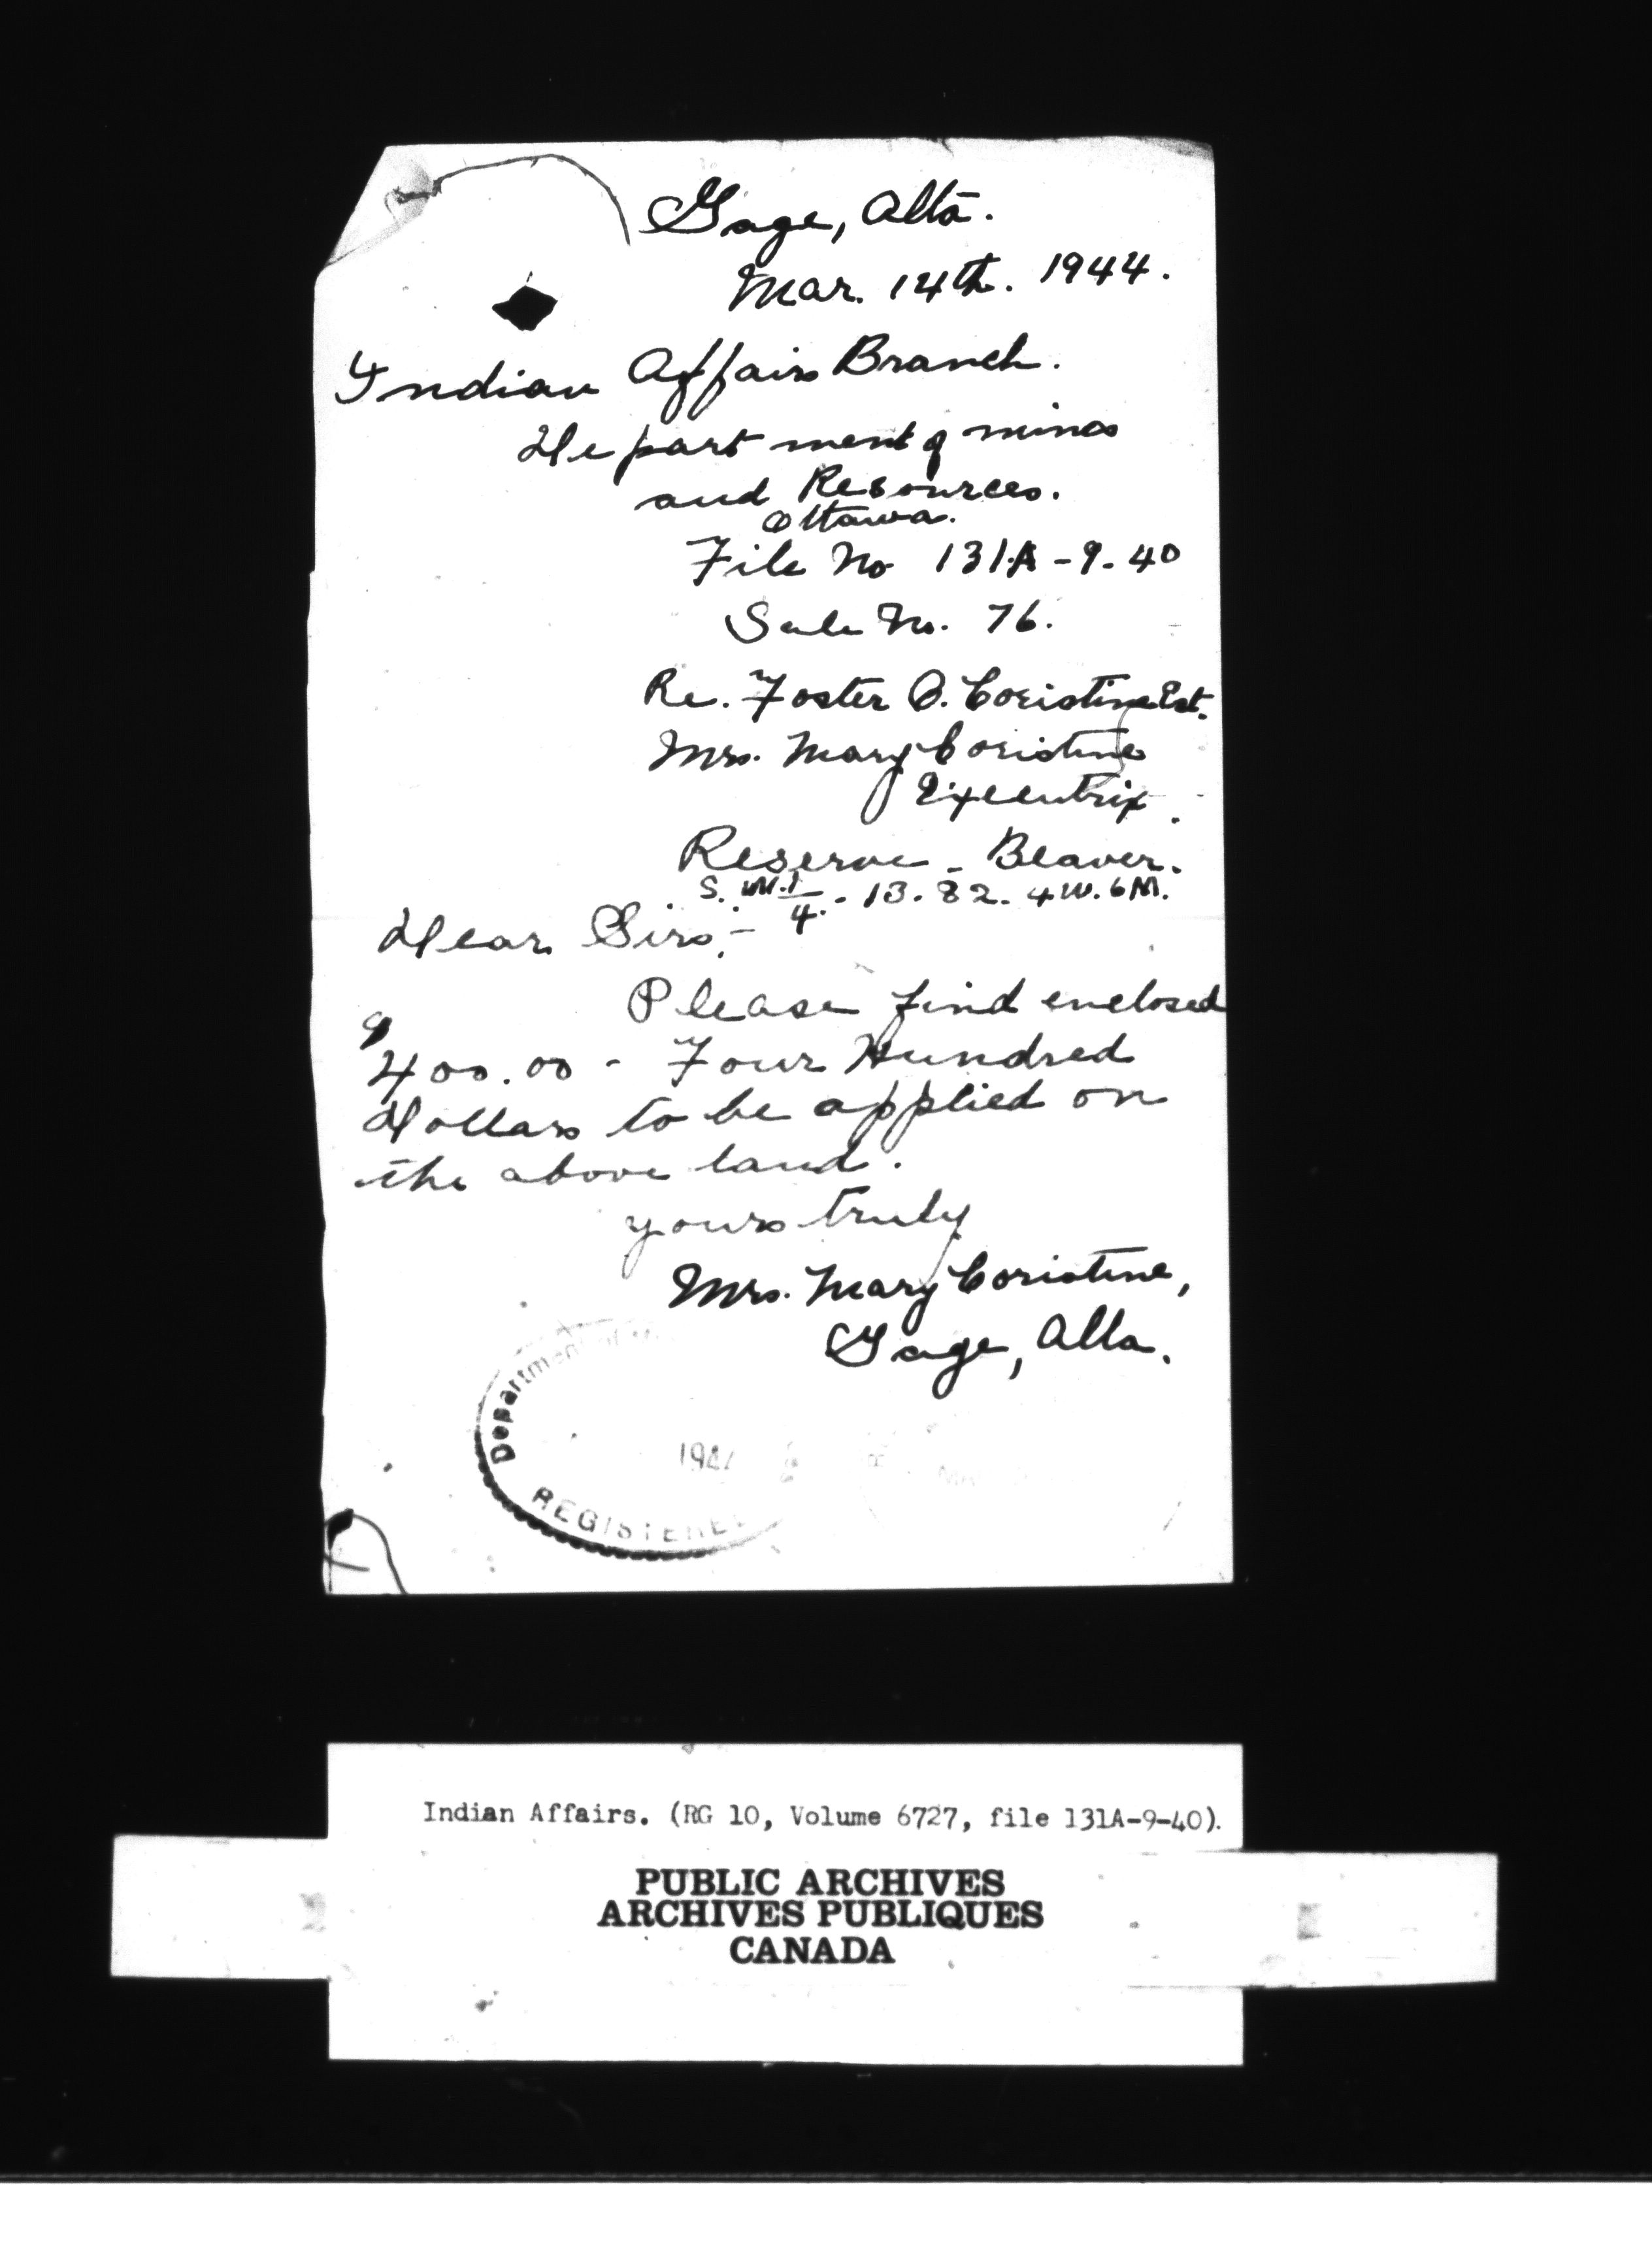 Gage, Alta.
Mar. 14th. 1944.
Indian Affairs Branch.
Department of mines
and Resources.
Ottawa.
File No 131A-9-40
Sale No. 76.
Re. Foster A. Coristine Est.
Mrs. Mary Coristine
Executrix.
Reserve - Beaver.
S. W. 1/4 - 13. 82. 4 W. 6 M.
Dear Sirs,-
Please find enclosed
$400.00 - Four Hundred
Dollars to be applied on
the above land.
yours truly
Mrs. Mary Coristine,
Gage, Alta.
Department of
REGISTERED
Indian Affairs. (RG 10, Volume 6727, file 131A-9-40).
PUBLIC ARCHIVES
ARCHIVES PUBLIQUES
CANADA